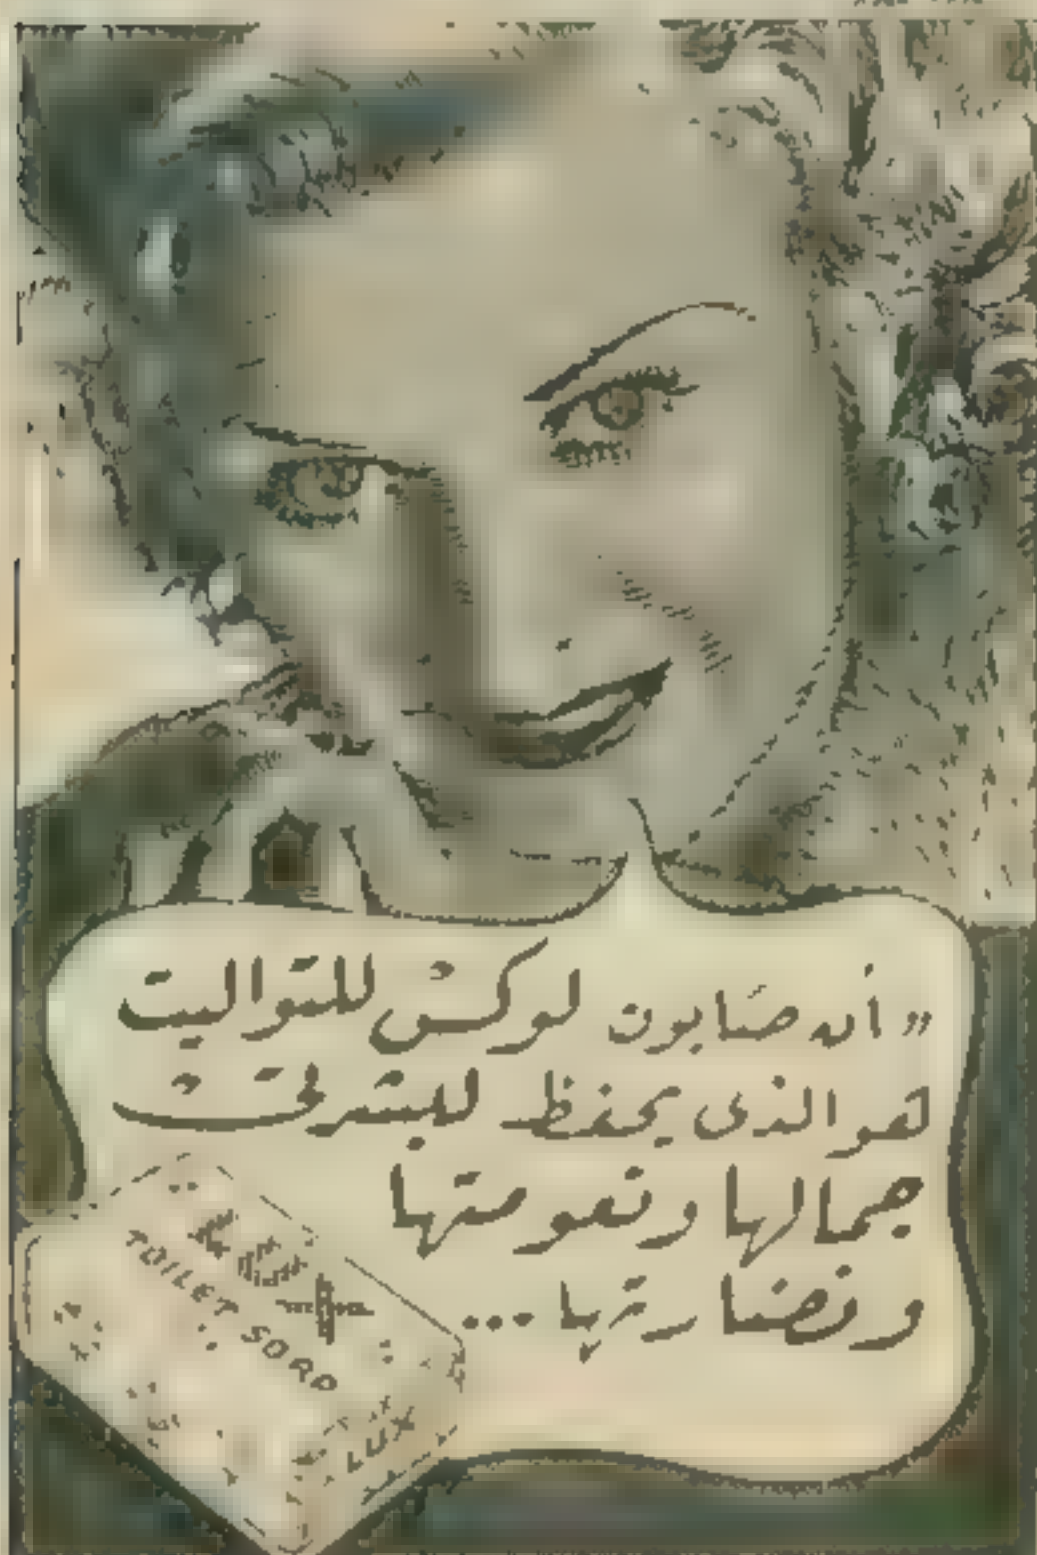 „ أن صابون لوكس للتواليت
هو الذى يحفظ للبشرتى
جمالها ونعومتها
ونضارتها ...
LUX
TOILET SOAP
LUX